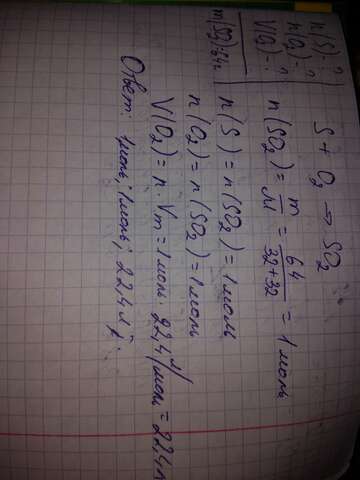 n(S)-?
n(O₂)-?
V(O₂)-?
m(SO₂)=64г
S + O₂ → SO₂
n(SO₂) = m/M = 64/(32+32) = 1 моль
n(S) = n(SO₂) = 1 моль
n(O₂) = n(SO₂) = 1 моль
V(O₂) = n · Vm = 1 моль · 22,4 л/моль = 22,4 л
Ответ: 1 моль; 1 моль; 22,4 л